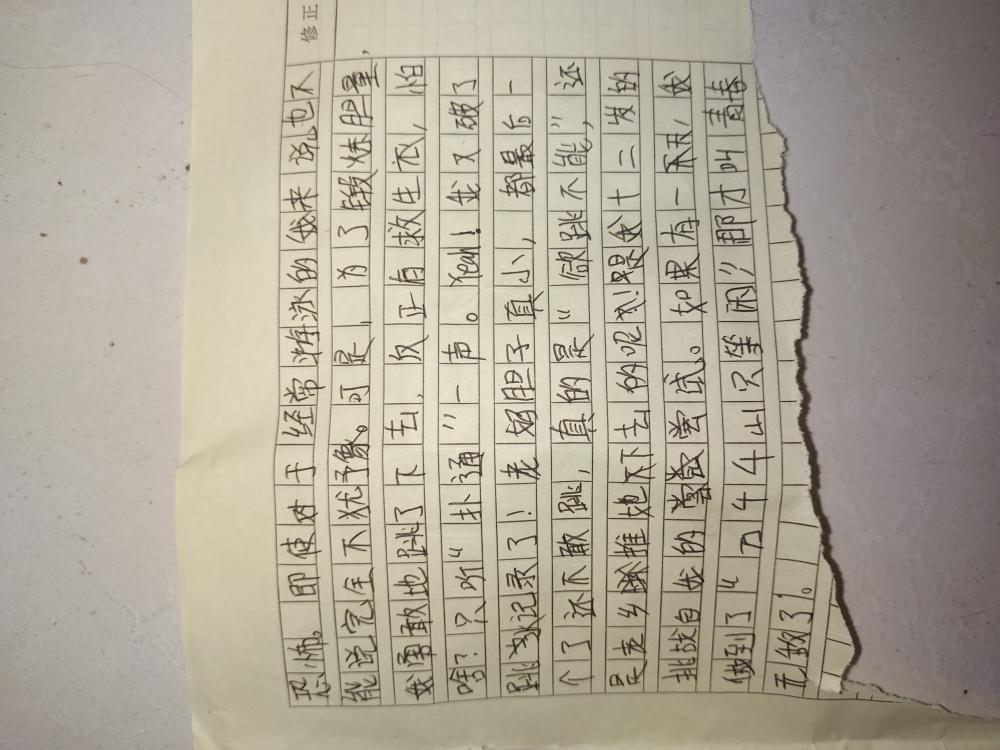 修正
恐怖。即使对于经常游泳的我来说也不
能说完全不犹予像。可是,为了锻炼胆量,
我勇敢地跳了下去,反正有救生衣,怕
啥?只听“扑通”一声。Yeah!我又破了
跳水记录了!老妈胆子真小,都最后一
个了还不敢跳,真的是“欲跳不能”,还
是老乡推她下去的呢!是金十二发的
挑战自我的尝试。如果有一天,我
做到了“744山只等闲”?那才叫青春
无敌了!。